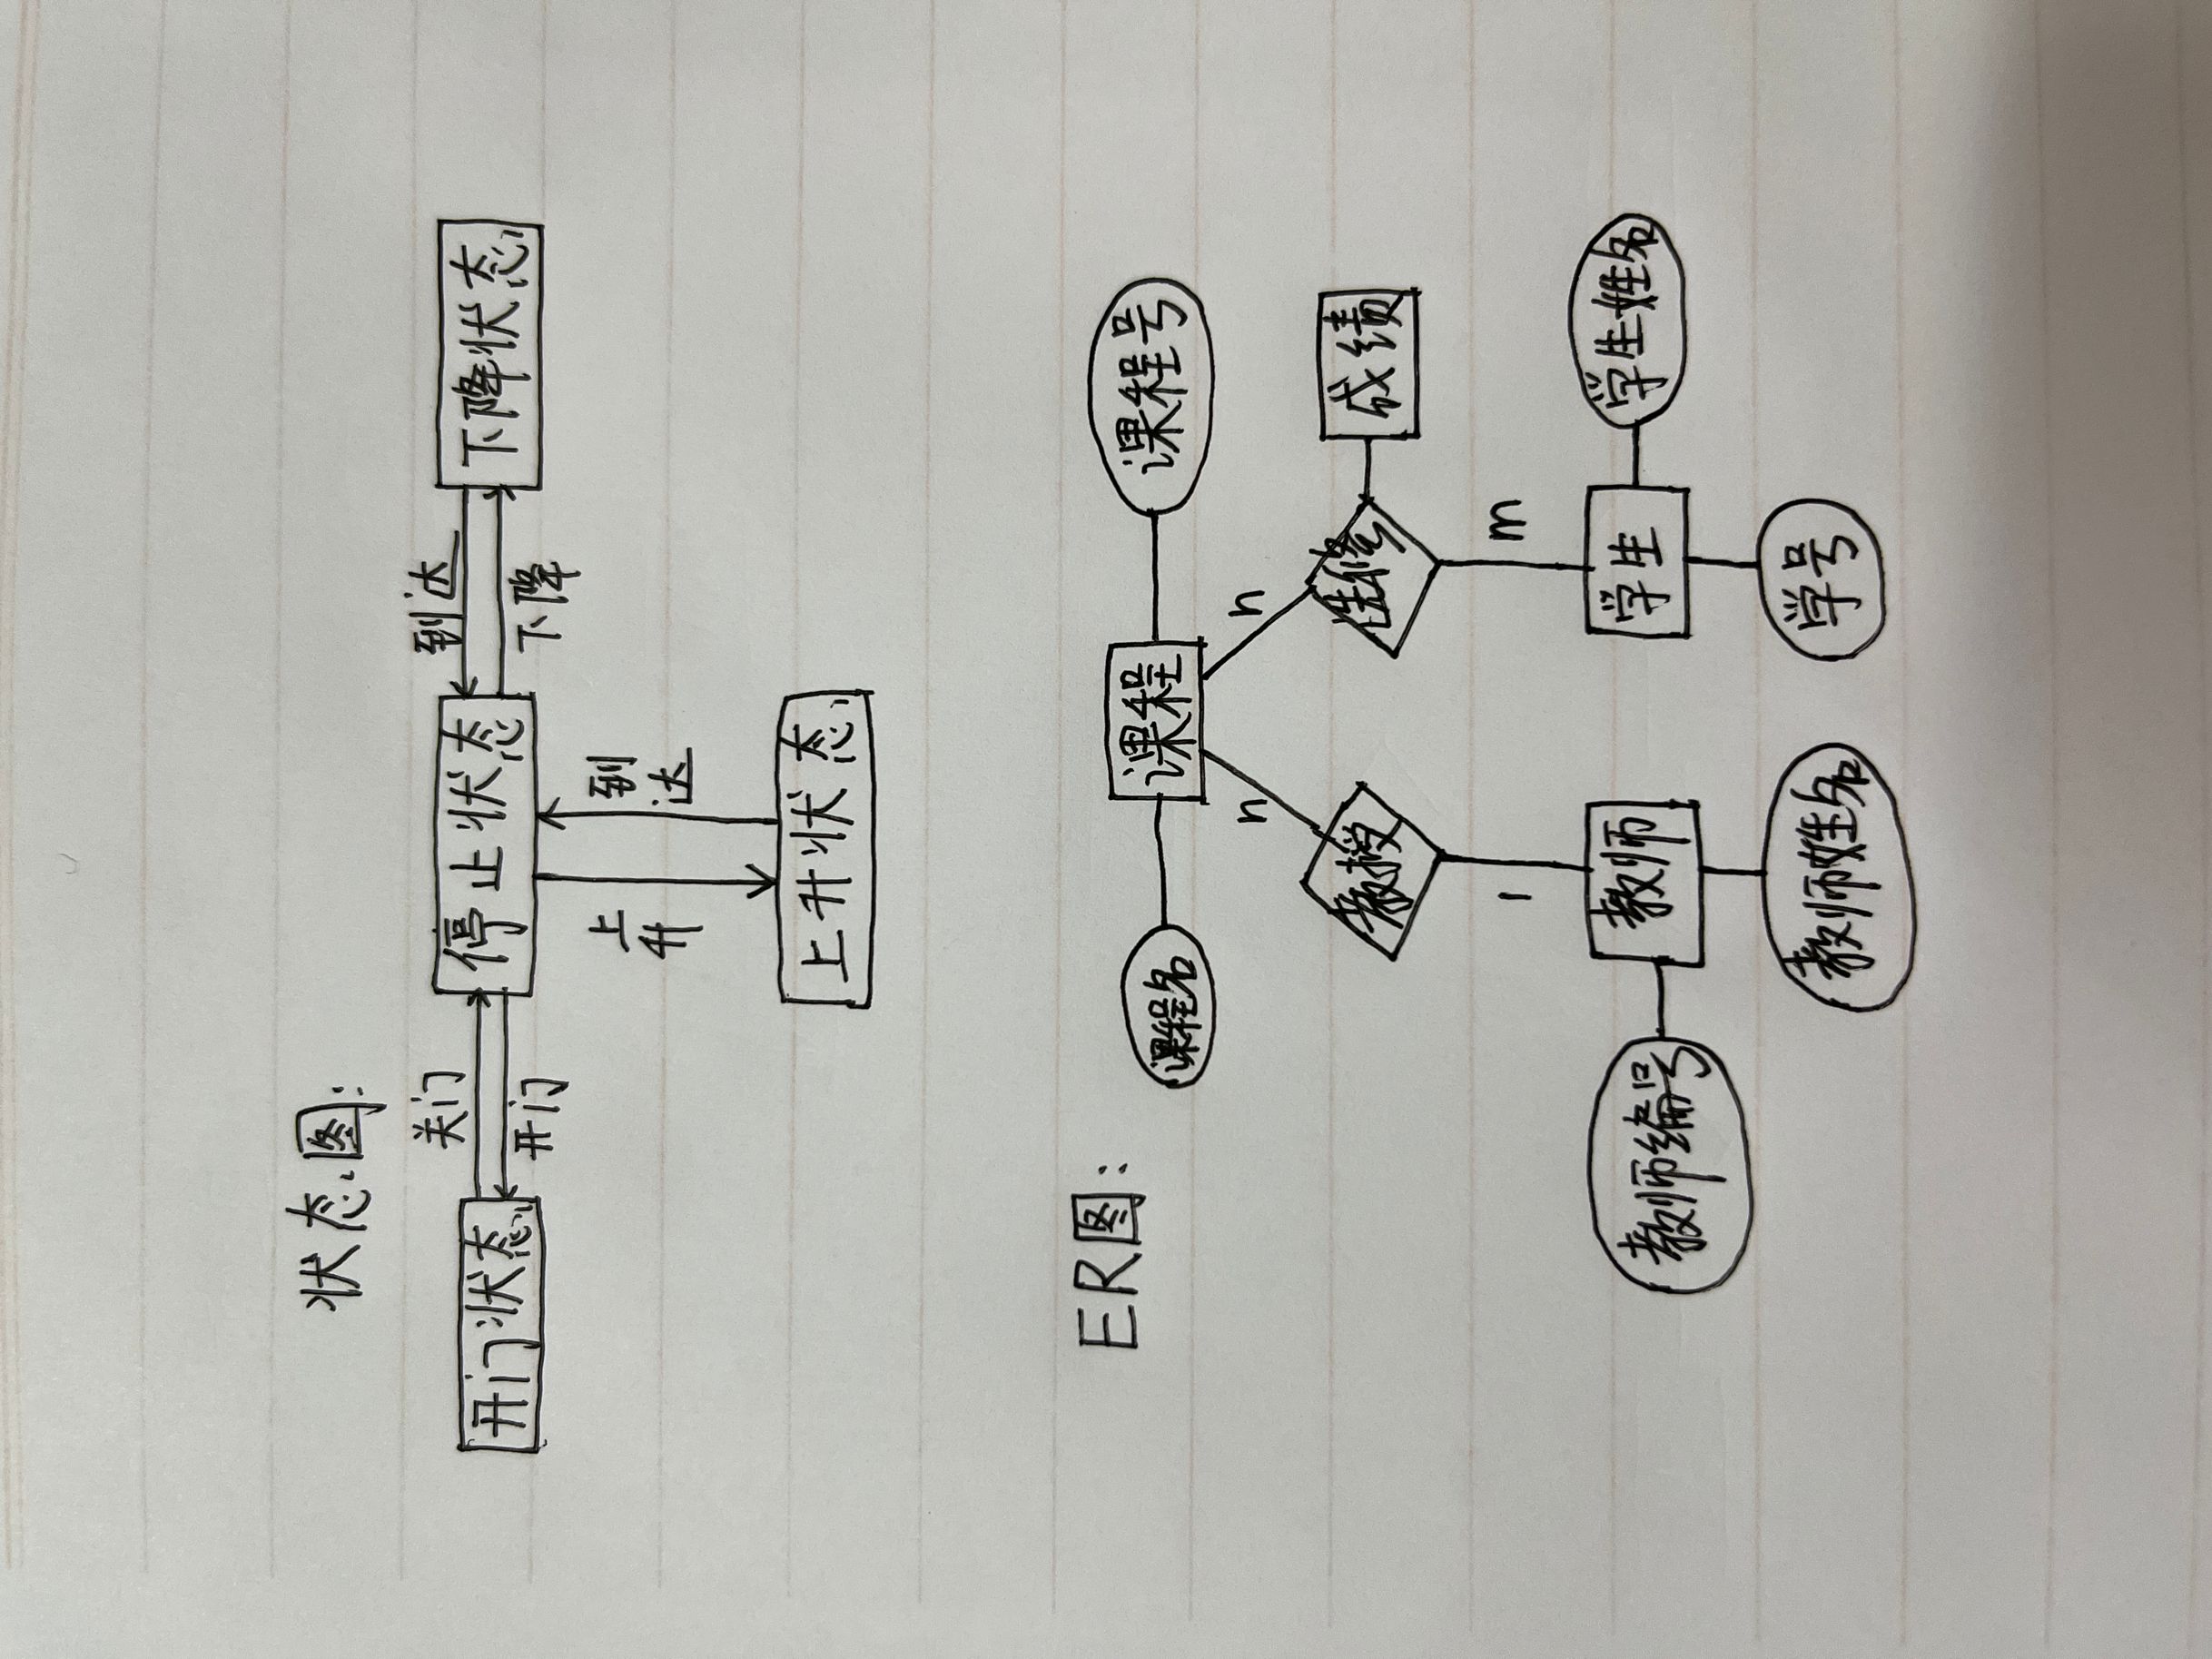 状态图:
关门
到达
开门状态
停止状态
下降状态
开门
下降
上升
到达
上升状态
ER图:
课程名
课程
课程号
n
n
教授
选修
成绩
1
m
教师编号
教师
学生
学生姓名
教师姓名
学号